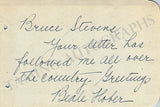 Bruce Stevens
Your letter has
followed me all over
the country. Greetings